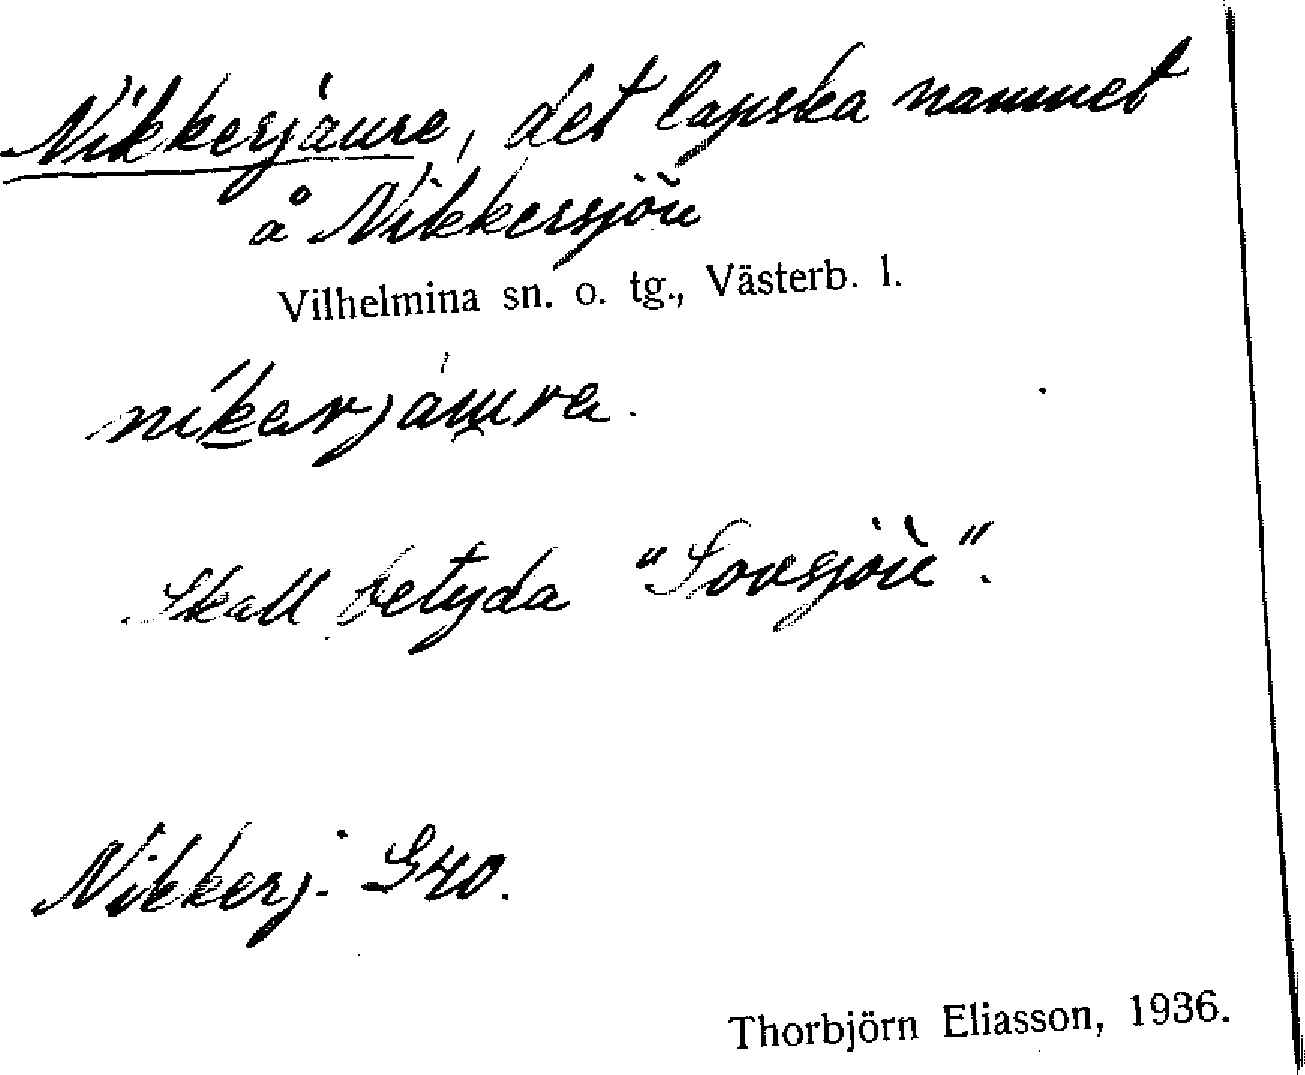 Nikkerjaure, det lapska namnet
å Nikkersjön
Vilhelmina sn. o. tg., Västerb. l.
nikerjáura.
Skall betyda "Sovsjön".
Nikkerj. G40.
Thorbjörn Eliasson, 1936.